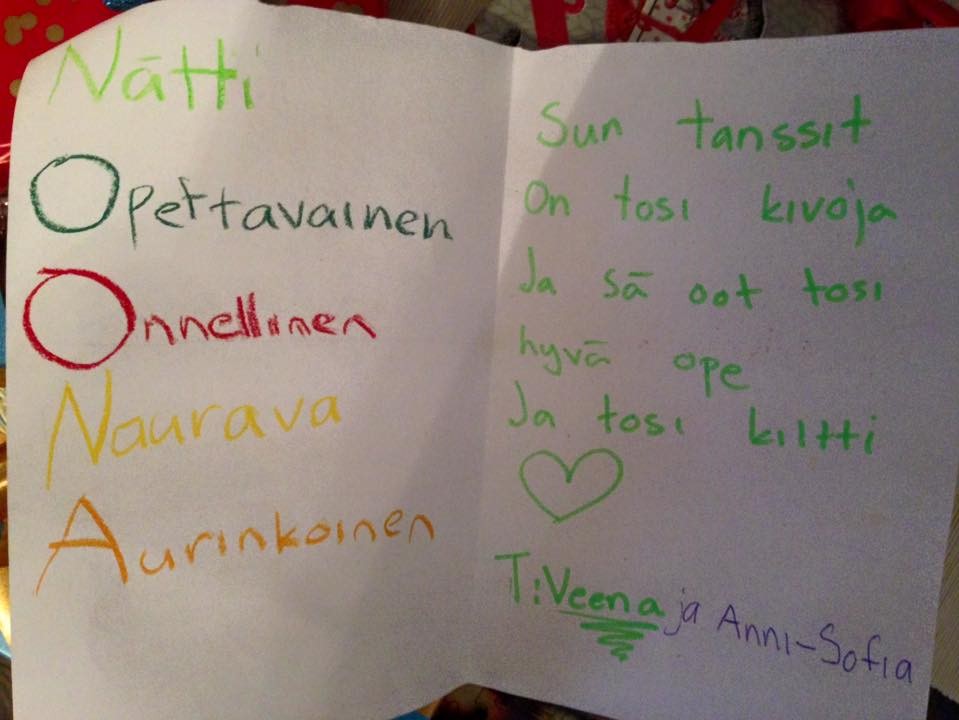 Nätti
Opettavainen
Onnellinen
Naurava
Aurinkoinen
Sun tanssit
On tosi kivoja
Ja sä oot tosi
hyvä ope
Ja tosi kiltti
T:Veena ja Anni-Sofia